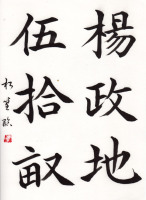 楊政地
伍拾畝